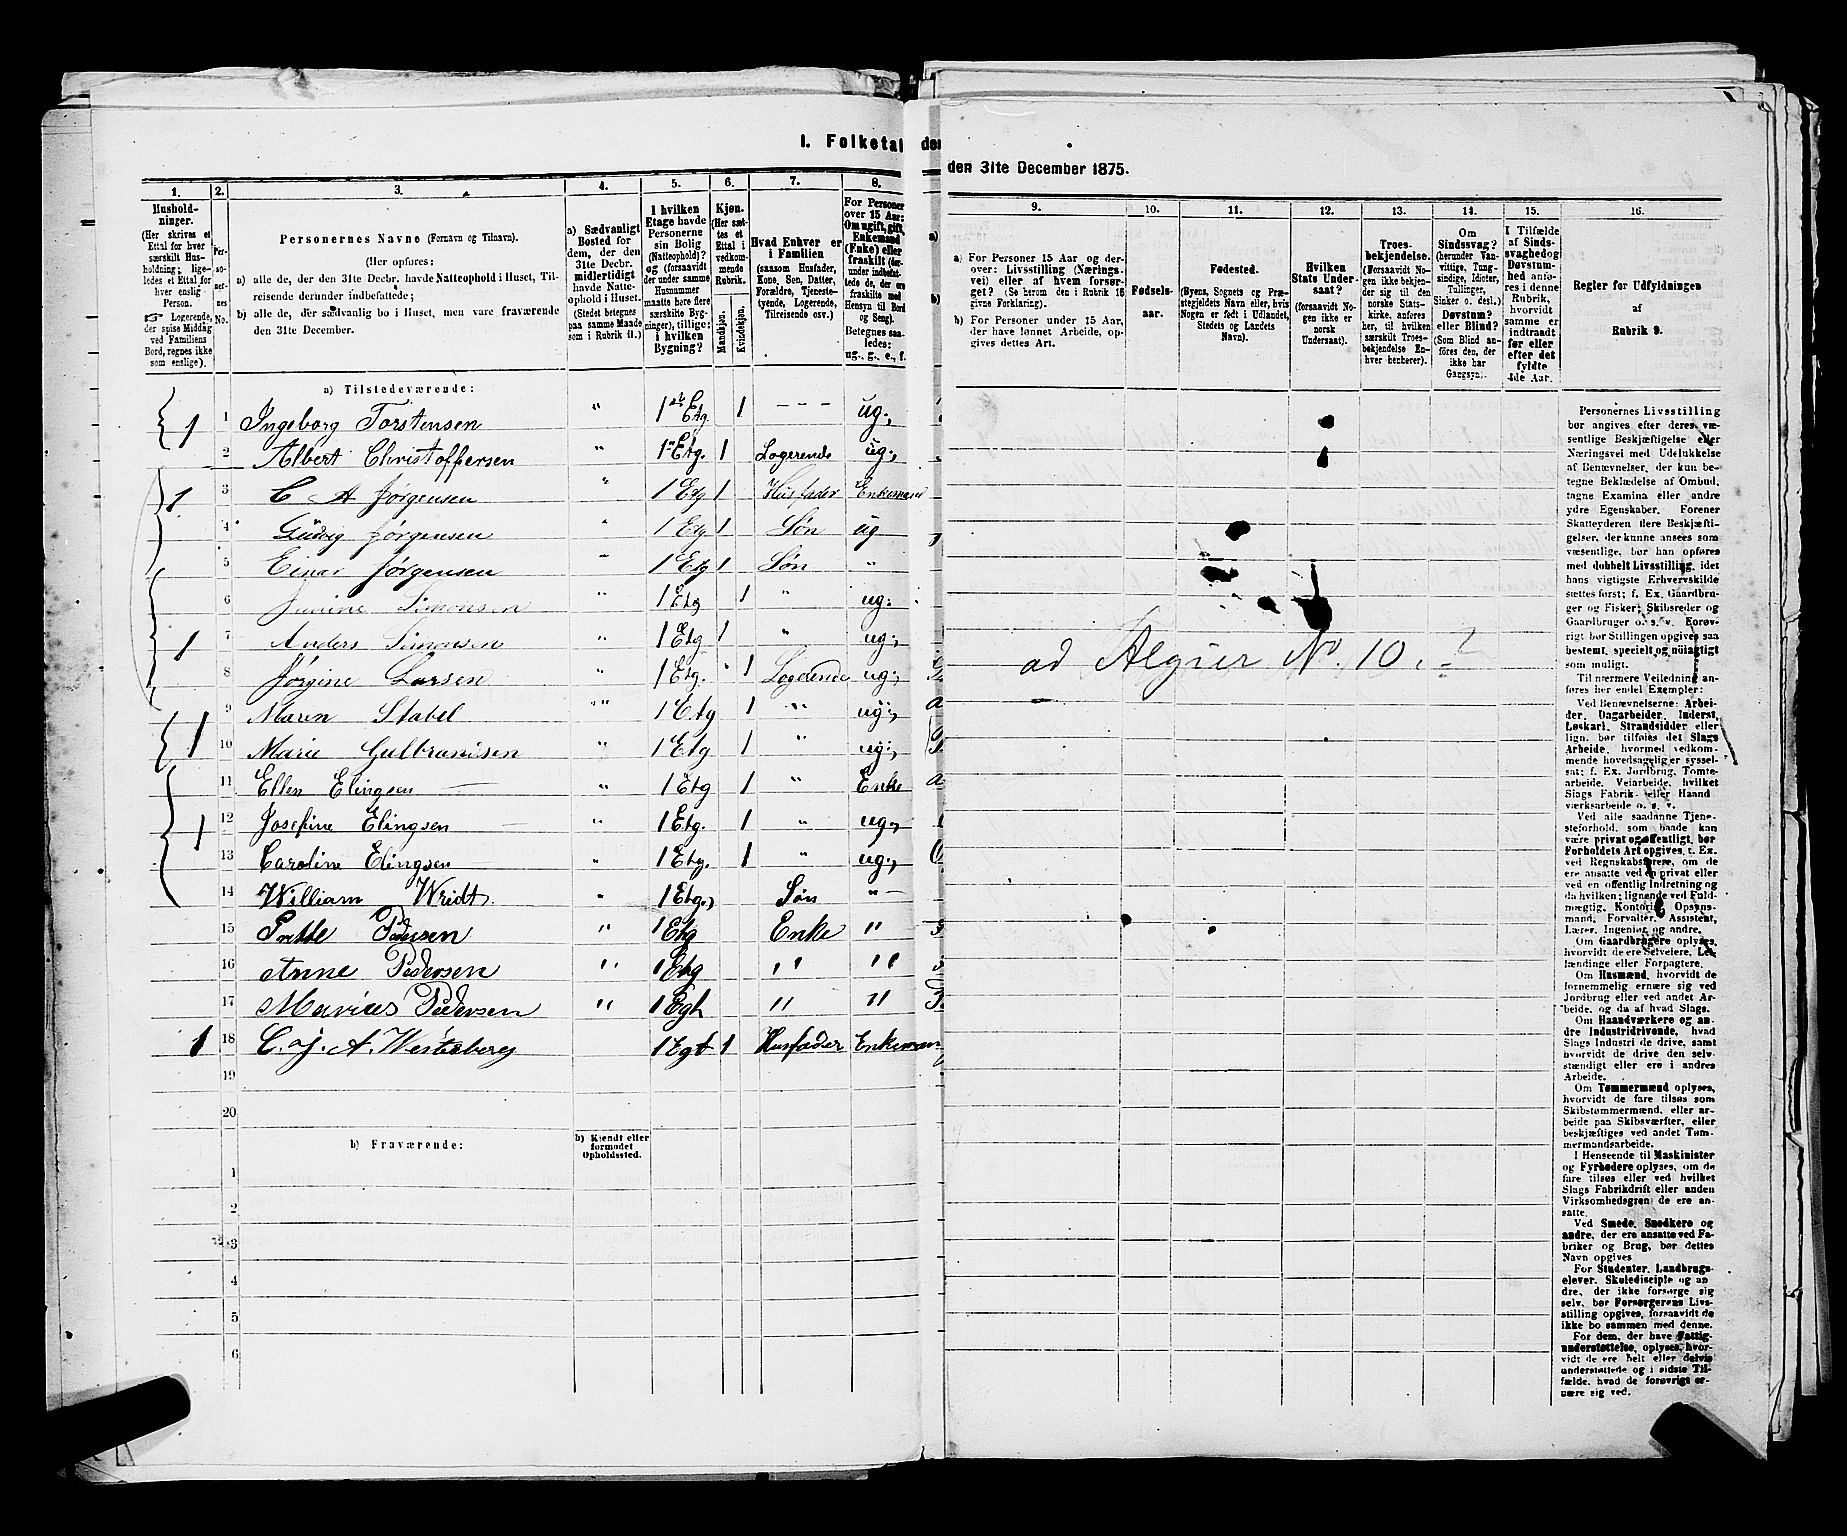 I. Folketal den
den 31te December 1875.
1. 2. 3. 4. 5. 6. 7. 8.
Hushold-
ninger.
(Her skrives et
Ettal for hver
særskilt Hus-
holdning; lige-
ledes et Ettal for
hver enslig
Person.
☞ Logerende,
der spise Middag
ved Familiens
Bord, regnes ikke
som enslige).
Per-
so-
ner-
nes
No.
Personernes Navne (Fornavn og Tilnavn).
(Her opføres:
a) alle de, der den 31te Decbr. havde Natteophold i Huset, Til-
reisende derunder indbefattede;
b) alle de, der sædvanlig bo i Huset, men vare fraværende
den 31te December.
a) Sædvanligt
Bosted for
dem, der den
31te Decbr.
midlertidigt
havde Natte-
ophold i Huset.
(Stedet betegnes
paa samme Maade
som i Rubrik 11.)
I hvilken
Etage havde
Personerne
sin Bolig
(Natteophold)?
og (forsaavidt
der under samme
Husnummer
maatte høre flere
særskilte Byg-
ninger), tillige:
i hvilken
Bygning?
Kjøn.
(Her sæt-
tes et
Ettal i
vedkom-
mende
Rubrik.
Mandkjøn.
Kvindekjøn.
Hvad Enhver er
i Familien
(saasom Husfader,
Kone, Søn, Datter,
Forældre, Tjeneste-
tyende, Logerende,
Tilreisende osv.)
For Personer
over 15 Aar:
Om ugift, gift,
Enkemand
(Enke) eller
fraskilt (der-
under indbefat-
tede de, der ere
fraskilte med
Hensyn til Bord
og Seng).
Betegnes saa-
ledes:
ug., g., e., f.
a) Tilstedeværende:
1 1 Ingeborg Torstensen " 1 Etg 1 - - - ug.,
2 Albert Christoffersen " 1 Etg. 1 Logerende ug.,
1 3 C A Jørgensen " 1 Etg 1 Husfader Enkemand
4 Ludvig Jørgensen " 1 Etg 1 Søn ug
5 Einar Jørgensen " 1 Etg 1 Søn "
6 Simonsen " 1 Etg 1 " ug.
1 7 Anders Simonsen " 1 Etg 1 " ug.,
8 Jørgine Larsen " 1 Etg. 1 Logerende ug.,
9 Maren Stabel " " 1 Etg 1 " ug.,
1 10 Marie Gulbransen " 1 Etg 1 " ug.,
11 Ellen Elingsen " 1 Etg 1 " Enke
1 12 Josefine Elingsen " 1 Etg. 1 " ug.,
13 Caroline Elingsen " 1 Etg. 1 " ug.,
14 William Wridt. " 1 Etg., Søn " -
15 Pedersen " 1 Etg Enke "
16 Anne Pedersen " 1 Etg " "
17 Marius Pedersen " 1 Egt " "
1 18 C. J. A. Westerberg 1 Egt 1 Husfader Enkeman
19
20
b) Fraværende:
b) Kjendt eller
formodet
Opholdssted.
1
2
3
4
5
6
9. 10. 11. 12. 13. 14. 15. 16.
a) For Personer 15 Aar og der-
over: Livsstilling (Nærings-
vei) eller af hvem forsør-
get? (Se herom den i Rubrik 16
givne Forklaring).
b) For Personer under 15 Aar,
der have lønnet Arbeide, op-
gives dettes Art.
Fødsels-
aar.
Fødested.
(Byens, Sognets og Præ-
stegjeldets Navn eller, hvis
Nogen er født i Udlandet,
Stedets og Landets
Navn).
Hvilken
Stats Under-
saat?
(forsaavidt No-
gen ikke er
norsk
Undersaat).
Troes-
bekjendelse.
(Forsaavidt No-
gen ikke bekjen-
der sig til den
norske Stats-
kirke, anføres
her, til hvilken
særskilt Troes-
bekjendelse En-
hver henhører).
Om
Sindssvag?
(herunder Van-
vittige, Idioter,
Tullinger,
Sinker o. desl.)
Døvstum?
eller Blind?
(Som Blind an-
føres den, der
ikke har
Gangsyn).
I Tilfælde
af Sinds-
svaghed og
Døvstum-
hed anfø-
res i denne
Rubrik,
hvorvidt
samme er
indtraadt
før eller
efter det
fyldte
4de Aar.
Regler for Udfyldningen
af
Rubrik 9.
ad Algier No. 10. ?
Personernes Livsstilling
bør angives efter deres væ-
sentlige Beskjæftigelse eller
Næringsvei med Udelukkelse
af Benævnelser, der kun be-
tegne Beklædelse af Ombud,
tagne Examina eller andre
ydre Egenskaber. Forener
Skatteyderen flere Beskjæfti-
gelser, der kunne ansees som
væsentlige, bør han opføres
med dobbelt Livsstilling, idet
hans vigtigste Erhvervskilde
sættes først; f. Ex. Gaardbru-
ger og Fisker; Skibsreder og
Gaardbruger o. s. v. Forøv-
rigt bør Stillingen opgives saa
bestemt, specielt og nøiagtigt
som muligt.
Til nærmere Veiledning an-
føres her endel Exempler:
Ved Benævnelserne: Arbei-
der, Dagarbeider, Inderst,
Løskarl, Strandsidder eller
lign. bør tilføies det Slags
Arbeide, hvormed vedkom-
mende hovedsagelig er syssel-
sat; f. Ex. Jordbrug, Tomte-
arbeide, Veiarbeide, hvilket
Slags Fabrik- eller Haand
værksarbeide o. s. v.
Ved alle saadanne Tjene-
steforhold, som baade kan
være privat og offentligt, bør
Forholdets Art opgives, t. Ex.
ved Regnskabsførere, om de
ere ansatte ved en privat eller
ved en offentlig Indretning og
da hvilken; lignende ved Fuld-
mægtig, Kontorist, Opsyns-
mand, Forvalter, Assistent,
Lærer, Ingeniør og andre.
Om Gaardbrugere oplyses,
hvorvidt de ere Selveiere, Lei-
lændinge eller Forpagtere.
Om Husmænd, hvorvidt de
fornemmelig ernære sig ved
Jordbrug eller ved andet Ar-
beide, og da af hvad Slags.
Om Haandværkere og an-
dre Industridrivende, hvad
Slags Industri de drive, samt
hvorvidt de drive den selv-
stændigt eller ere i andres
Arbeide.
Om Tømmermænd oplyses,
hvorvidt de fare tilsøs som
Skibstømmermænd, eller ar-
beide paa Skibsværfter, eller
beskjæftiges ved andet Tøm-
mermandsarbeide.
I Henseende til Maskinister
og Fyrbødere oplyses, om de
fare tilsøs eller ved hvilket
Slags Fabrikdrift eller anden
Virksomhedsgren de ere an-
satte.
Ved Smede, Snedkere og
andre, der ere ansatte ved Fa-
briker og Brug, bør dettes
Navn opgives
For Studenter, Landbrugs-
elever, Skoledisciple og an
dre, der ikke forsørge sig
selv, bør Forsørgerens Livs-
stilling opgives, forsaavidt de
ikke bo sammen med denne.
For dem, der have Fattig-
understøttelse, oplyses, hvor-
vidt de ere helt eller delvis
understøttede og i sidste Til-
fælde, hvad de forøvrigt er-
nære sig ved.